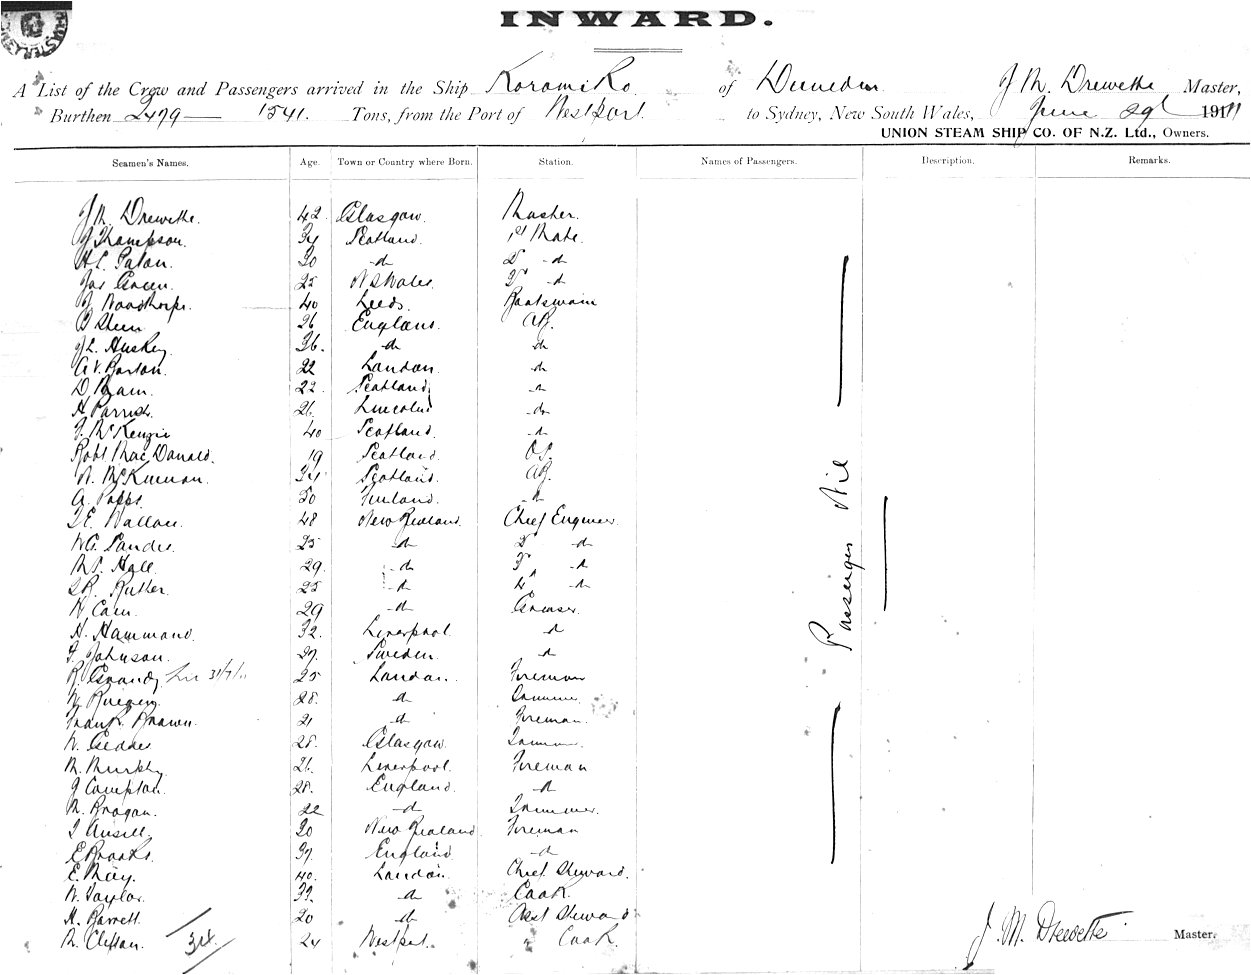 INWARD.
A List of the Crew and Passengers arrived in the Ship Koromiko of Dunedin J M Drewette Master,
Burthen 2479 — 1541. Tons, from the Port of Westport to Sydney, New South Wales, June 29th 1911
UNION STEAM SHIP CO. OF N.Z. Ltd., Owners.
Seamen's Names. Age. Town or Country where Born. Station. Names of Passengers. Description. Remarks.
J M Drewette. 42. Glasgow. Master.
J Thompson. 34 Scotland. 1st Mate.
H C Paton. 30 -d- 2d -d
Jas Green. 25 N S Wales. 3d -d
J Woodthorpe. 40 Leeds. Boatswain
26 England. AB.
J L. Huskey 36. do do
A V. Barton. 22 London. do
D Bain. 22. Scotland. do
H Parrish. 26. Lincoln do
J. McKenzie 40 Scotland. do
Robt MacDonald. 19 Scotland. OS.
N. McKinnon. 34 Scotland. AB.
A. Papps. 50 Finland. do
48 New Zealand. Chief Engineer
25 do 2d do
M P. Hall. 29. do 3d do
R. Rutter. 25 do 4th do
W Cain. 29 do Greaser.
H. Hammond. 32. Liverpool. do
F. Johnson. 37. Sweden. do
R. Grandy 25 London. Fireman
28. do
Frank Brown. 21 do Fireman.
W. Geddes 28. Glasgow. Trimmer.
M. Murphy. 26. Liverpool. Fireman
J Compton. 28. England. do
M. Brogan. 22 do Trimmer.
30 New Zealand Fireman
E Brooks. 37. England do
E. May. 40. London. Chief Steward.
W. Taylor. 33. do Cook.
H. Barrett. 20 do Asst Steward
M. Clifton. 34 24 Westport. Cook.
Passengers Nil
J. M. Drewette Master.